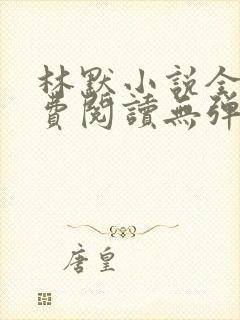 林默小說全
費閱讀無彈
唐皇